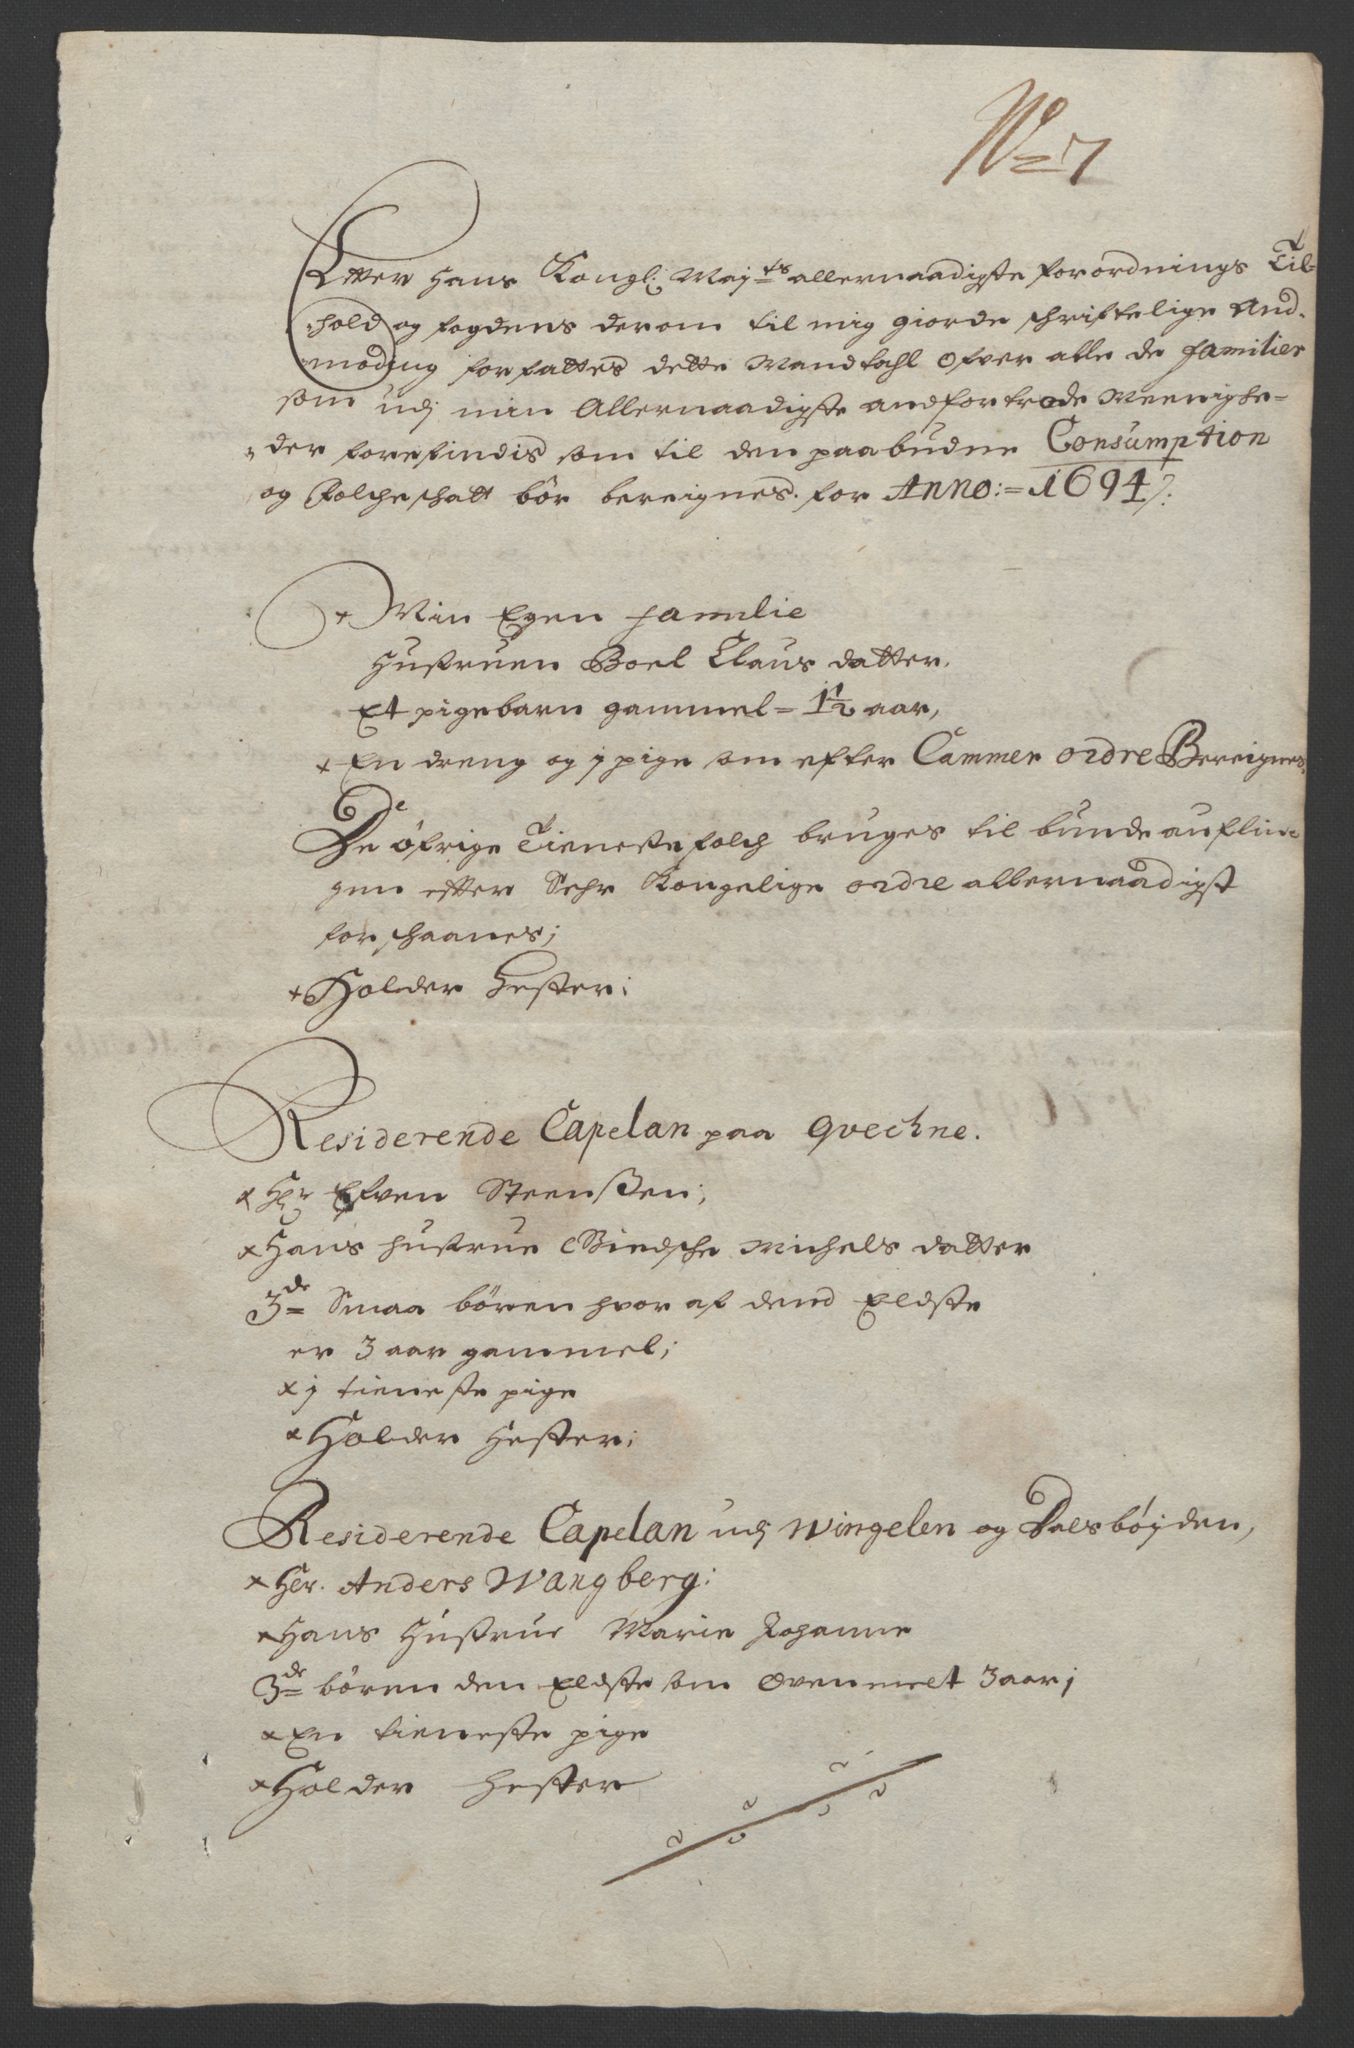 No 7
Efter Hans Kongl: Maj:ts allernaadigste forordnings Til-
hold og fogdens derom til mig giorde schriftelige And-
moding forfattes dette Mandtahl ofver alle de familier
som udj min Allernaadigste andfortrode Meenighe-
der forefindis som til den paabudne Consumption
og Folcheschatt bör bereignes. for Anno:= 1694/:
+ Min Egen familie
Hustruen Boel Claus datter.
Et pigebarn gammel = 1½ aar,
+ En dreng og j pige som efter Cammer ordre Bereignes,
De öfrige Tienestefolch bruges til bunde auflin-
gen efter Sehr Kongelige ordre allernaadigst
forschaanes;
+ Holder Hester;
Residerende Capelan paa Qvechne.
x Hr Efven Steensßen;
x Hans hustrue Michels datter
3de Smaa bören hvor af dend Eldste
er 3 aar gammel;
x j tieneste pige
x Holder Hester;
Residerende Capelan udj Wingelen og Dalsböjden,
x Her. Anders Wangberg:
x Hans Hustrue Marie Johanne
3de bören den Eldste som Ovenmelt 3 aar;
x En tieneste pige
x Holder Hester